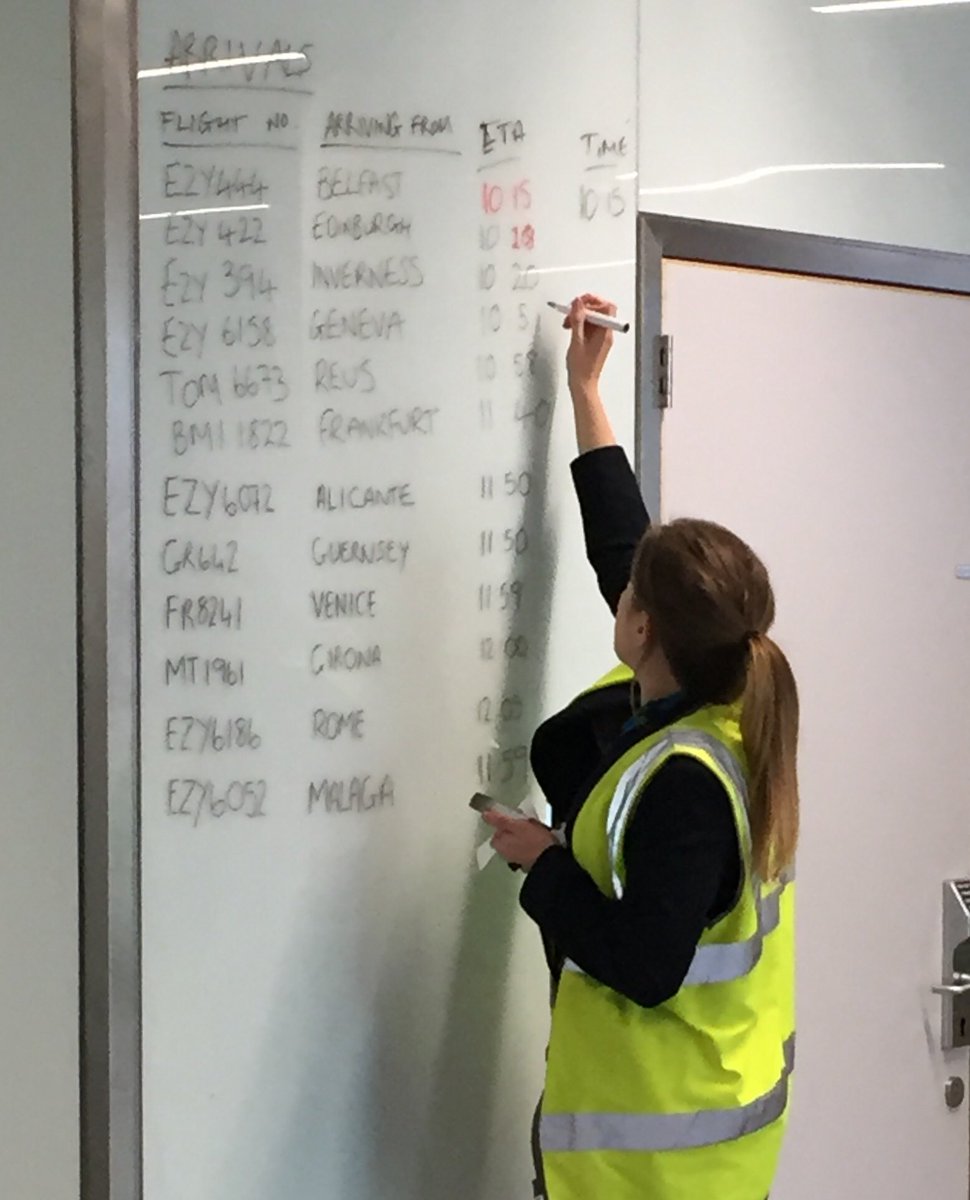 ARRIVALS
FLIGHT NO ARRIVING FROM ETA TIME
EZY444 BELFAST 10 15 10 15
EZY 422 EDINBURGH 10 18
EZY 394 INVERNESS 10 20
EZY 6158 GENEVA 10 5
TOM 6673 REUS 10 58
BMI 1822 FRANKFURT 11 40
EZY6072 ALICANTE 11 50
GR642 GUERNSEY 11 50
FR8241 VENICE 11 59
MT1961 GIRONA 12 00
EZY6186 ROME 12 05
EZY6052 MALAGA 11 59